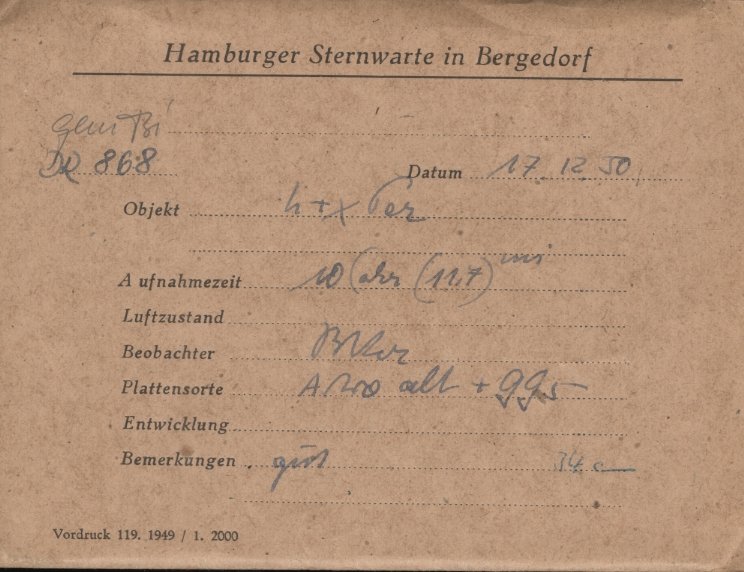 Hamburger Sternwarte in Bergedorf
DR 868 Datum 17.12.50
Objekt h+χ Per
Aufnahmezeit 10 (11,7)
Luftzustand
Beobachter
Plattensorte Astro alt + GG5
Entwicklung
Bemerkungen gut 34 c
Vordruck 119. 1949 / 1. 2000